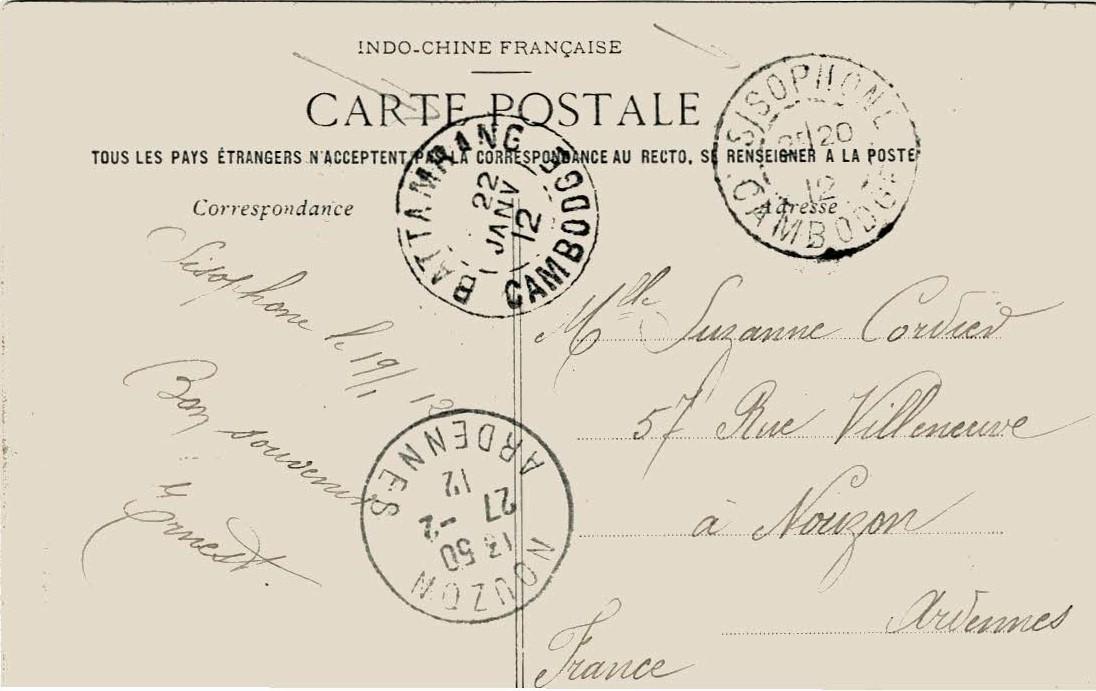 INDO-CHINE FRANÇAISE
CARTE POSTALE
TOUS LES PAYS ÉTRANGERS N'ACCEPTENT PAS LA CORRESPONDANCE AU RECTO, SE RENSEIGNER A LA POSTE
Correspondance
Adresse
SISOPHONE
20
12
CAMBODGE
BATTAMBANG
22
JANV
12
CAMBODGE
Sisophone le 19/1 12
Bon souvenir
Ernest.
Mlle Suzanne Cordier
57 Rue Villeneuve
à Nouzon
Ardennes
France
NOUZON
13 50
27 -2
12
ARDENNES